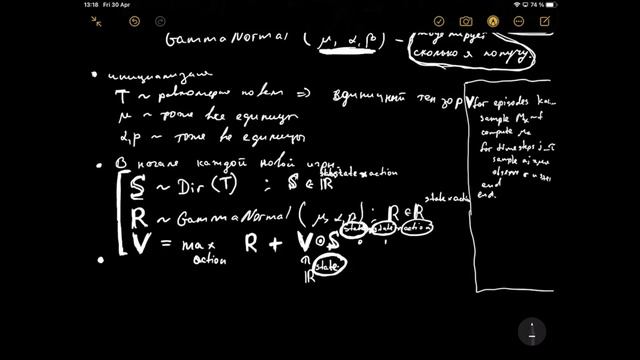 13:18 Fri 30 Apr
74 %
GammaNormal ( μ, α, β ) –
сколько я получу.
• инициализация
T ~ равномерно по всем => Единичный тензор
μ ~ тоже все единицы
α, β ~ тоже все единицы
• В начале каждой новой игры
S ~ Dir (T) : S ∈ ℝ state × action
R ~ GammaNormal ( μ, α, β ) : R ∈ ℝ state × action
V = max R + V ⊙ S state, state × action
action 0 1
ℝ state
for episodes
sample
compute
for timesteps
sample
observe
end
end.